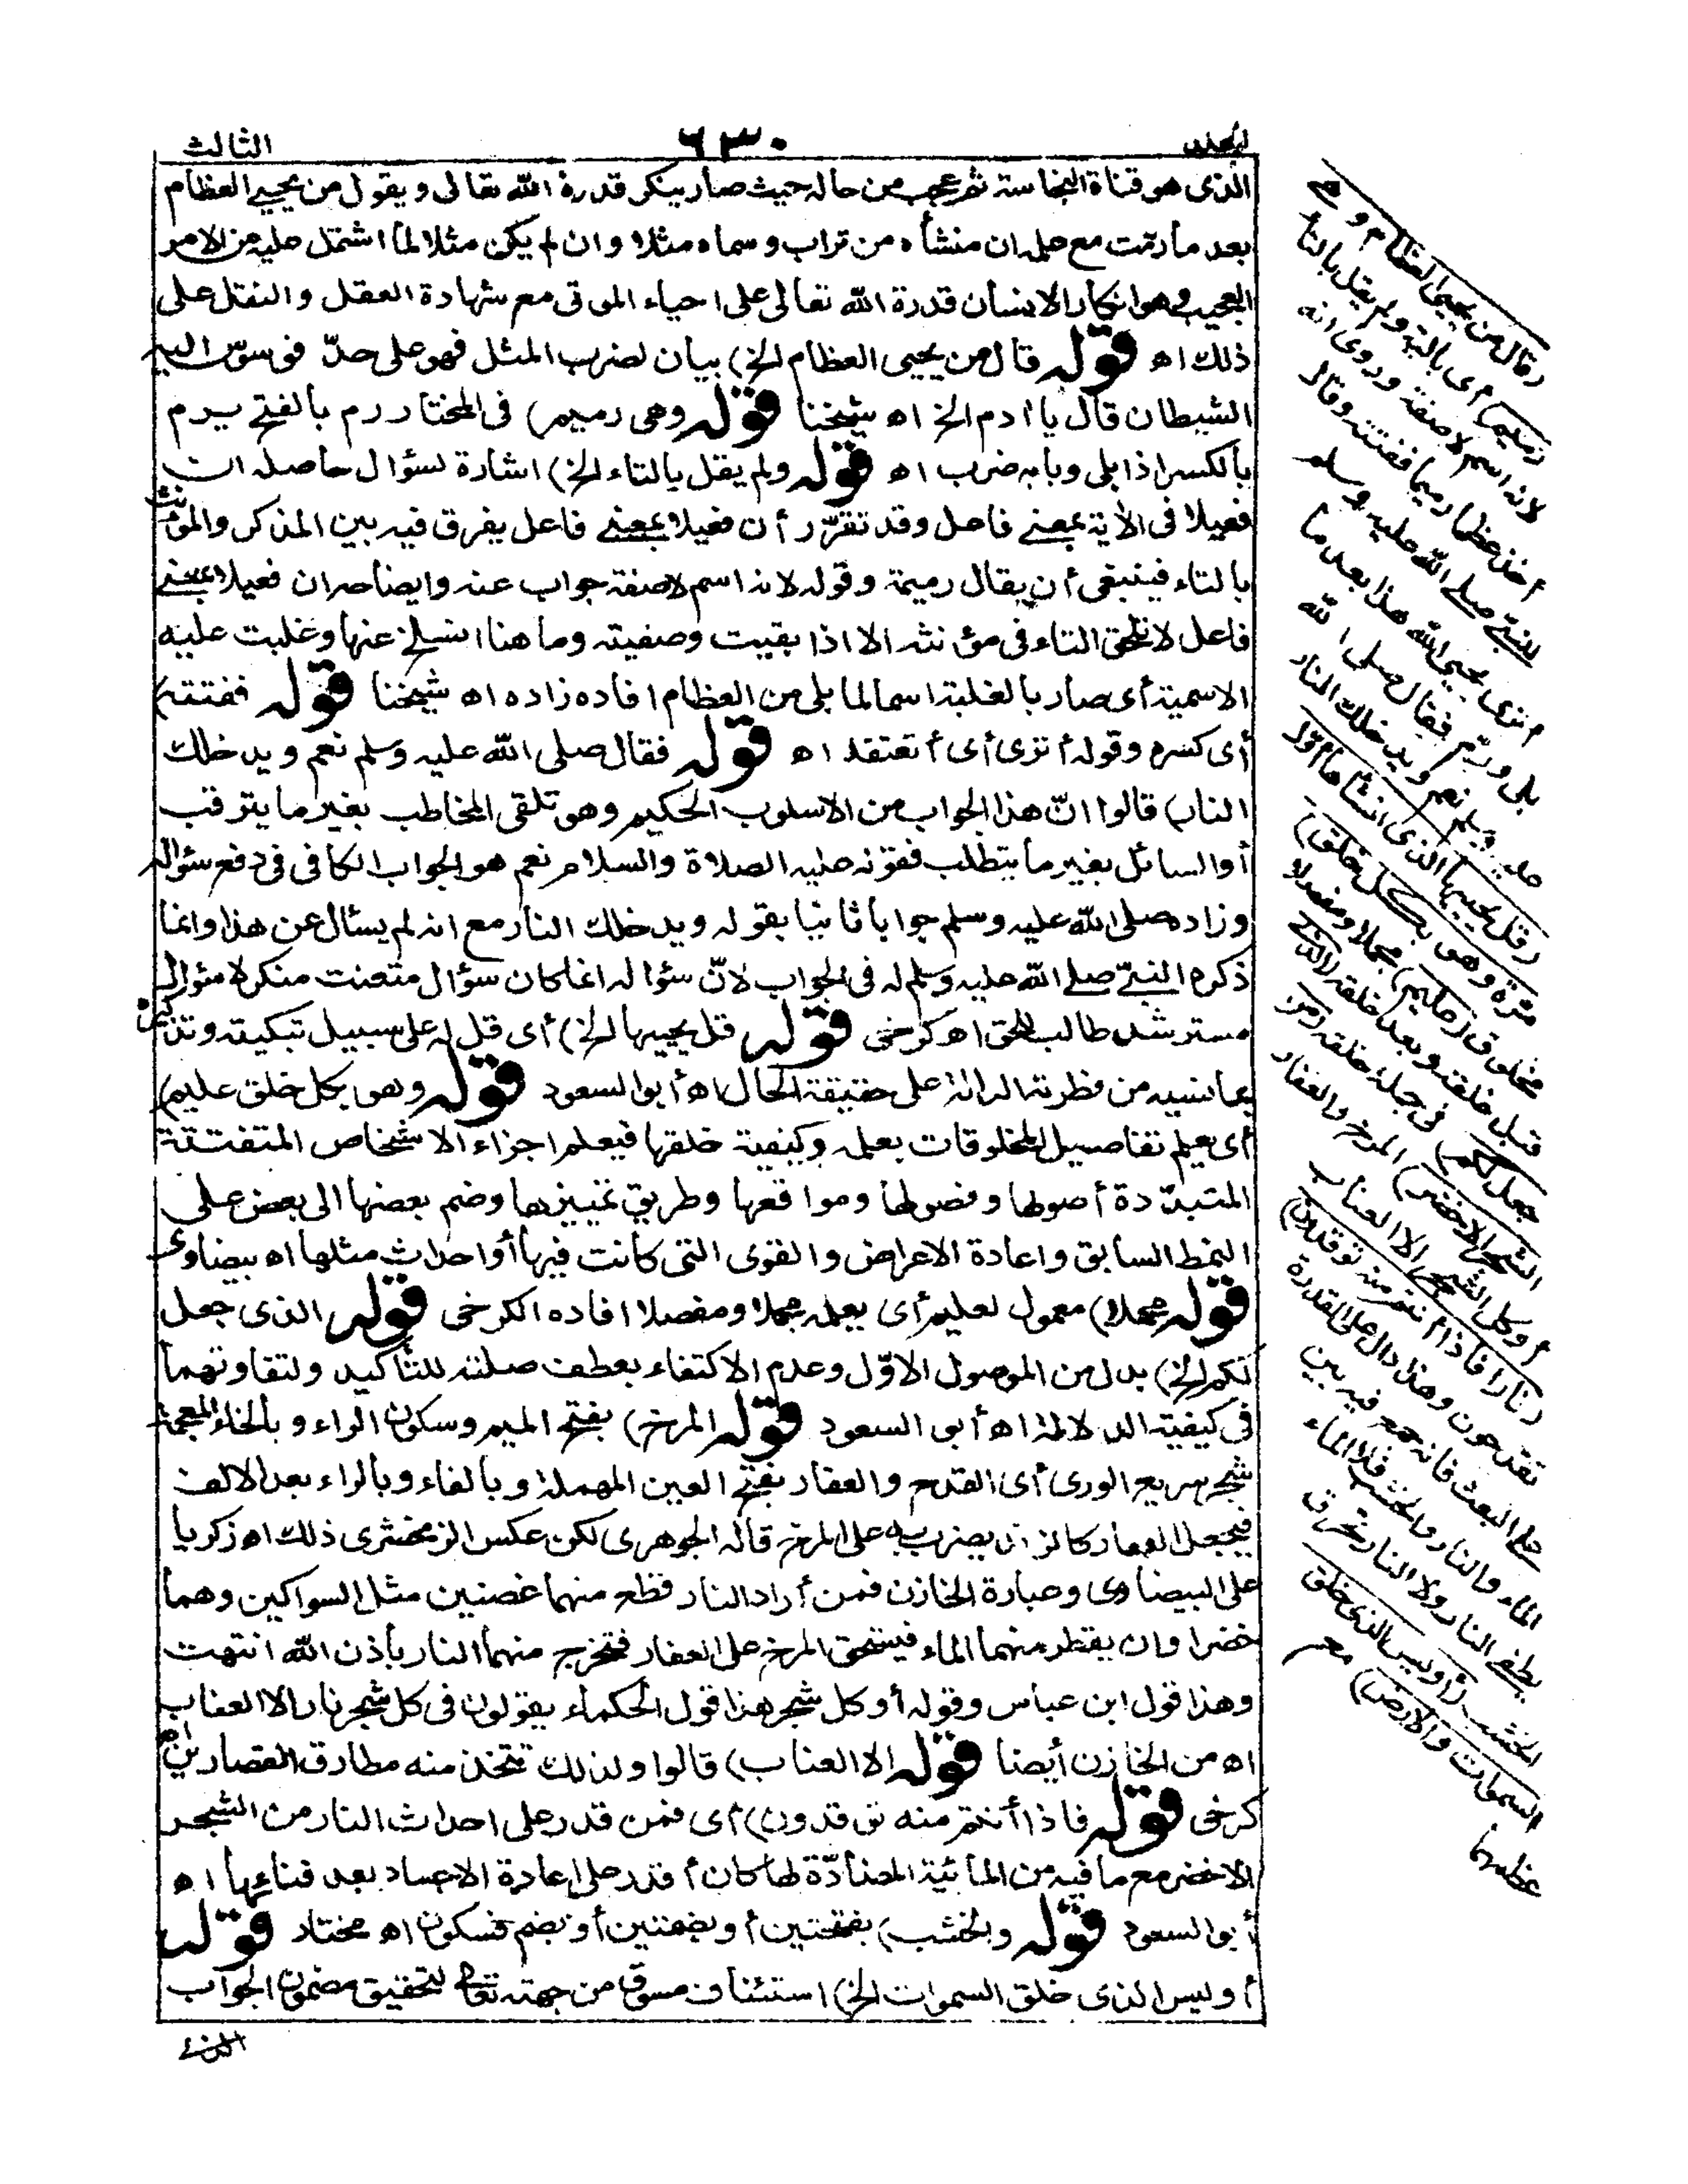 المجلد
٦٣٠
الثالث
الذى هو قناة النجاسة ثم عجب من حاله حيث صار ينكر قدرة الله تعالى ويقول من يحيي العظام
بعد ما رمّت مع علمه ان منشأه من تراب وسماه مثلا وان لم يكن مثلا لما اشتمل عليه من الامر
العجيب وهو انكار الانسان قدرة الله تعالى على احياء الموتى مع شهادة العقل والنقل على
ذلك اه قوله قال من يحيى العظام الخ) بيان لضرب المثل فهو على حدّ فوسوس اليه
الشيطان قال يا ادم الخ اه شيخنا قوله وهى رميم) فى المختار رم بالفتح يرم
بالكسر اذا بلى وبابه ضرب اه قوله ولم يقل بالتاء الخ) اشارة لسؤال حاصله ان
فعيلا فى الآية بمعنى فاعل وقد تقرّر أن فعيلا بمعنى فاعل يفرق فيه بين المذكر والمؤنث
بالتاء فينبغى أن يقال رميمة وقوله لانه اسم لا صفة جواب عنه وايضاحه ان فعيلا بمعنى
فاعل لا تلحق التاء فى مؤنثه الا اذا بقيت وصفيته وما هنا انسلخ عنها وغلبت عليه
الاسمية أى صار بالغلبة اسما لما بلى من العظام افاده زاده اه شيخنا قوله ففتته)
أى كسره وقوله أترى أى أتعتقد اه قوله فقال صلى الله عليه وسلم نعم ويدخلك
النار) قالوا انّ هذا الجواب من الاسلوب الحكيم وهو تلقى المخاطب بغير ما يترقب
أو السائل بغير ما يتطلب فقوله عليه الصلاة والسلام نعم هو الجواب الكافى فى دفع سؤاله
وزاده صلى الله عليه وسلم جوابا ثانيا بقوله ويدخلك النار مع انه لم يسأل عن هذا وانما
ذكره النبى صلى الله عليه وسلم له فى الجواب لانّ سؤاله انما كان سؤال متعنت منكر لا سؤال
مسترشد طالب للحق اه كرخى قوله قل يحييها الخ) أى قل له على سبيل تبكيته وتذكيره
بما نسيه من فطرته الدالة على حقيقة الحال اه أبو السعود قوله وهو بكل خلق عليم)
أى يعلم تفاصيل المخلوقات بعلمه وكيفية خلقها فيعلم اجزاء الاشخاص المتفتتة
المتبدّدة أصولها وفصولها ومواقعها وطريق تمييزها وضم بعضها الى بعض على
النمط السابق واعادة الاعراض والقوى التى كانت فيها أو احداث مثلها اه بيضاوى
قوله مجملا) معمول لعليم أى يعلمه مجملا ومفصلا افاده الكرخى قوله الذى جعل
لكم الخ) بدل من الموصول الاوّل وعدم الاكتفاء بعطف صلته للتأكيد ولتفاوتهما
فى كيفية الدلالة اه أبى السعود قوله المرخ) بفتح الميم وسكون الراء وبالخاء المعجمة
شجر سريع الورى أى القدح والعفار بفتح العين المهملة وبالفاء وبالراء بعد الالف
فيجعل العفار كالزند يضرب به على المرخ قاله الجوهرى لكن عكس الزمخشرى ذلك اه زكريا
على البيضاوى وعبارة الخازن فمن أراد النار قطع منهما غصنين مثل السواكين وهما
خضراوان يقطر منهما الماء فيسحق المرخ على العفار فتخرج منهما النار بأذن الله انتهت
وهذا قول ابن عباس وقوله أو كل شجر هذا قول الحكماء يقولون فى كل شجر نار الا العناب
اه من الخازن أيضا قوله الا العناب) قالوا ولذلك تتخذ منه مطارق القصارين اه
كرخى قوله فاذا أنتم منه توقدون) أى فمن قدر على احداث النار من الشجر
الاخضر مع ما فيه من المائية المضادّة لها كان أقدر على اعادة الاجساد بعد فنائها اه
أبو السعود قوله والخشب) بفتحتين أو بضمتين أو بضم فسكون اه مختار قوله
أوليس الذى خلق السموات الخ) استئناف مسوق من جهته تعالى لتحقيق مضمون الجواب
الذى
(قال من يحيى العظام وهى
رميم) أى بالية ولم يقل بالتاء
لانه اسم لا صفة وروى انه
أخذ عظما رميما ففتته وقال
للنبى صلى الله عليه وسلم
أترى يحيى الله هذا بعد ما
بلى ورمّ فقال صلى الله
عليه وسلم نعم ويدخلك النار
(قل يحييها الذى انشأها أوّل
مرّة وهو بكل خلق)
مخلوق (عليم) مجملا ومفصلا
قبل خلقه وبعد خلقه (الذى
جعل لكم) فى جملة خلقه (من
الشجر الاخضر) المرخ والعفار
أو كل الشجر الا العناب
(نارا فاذا أنتم منه توقدون)
تقدحون وهذا دال على القدرة
على البعث فانه جمع فيه بين
الماء والنار والخشب فلا الماء
يطفى النار ولا النار تحرق
الخشب (أوليس الذى خلق
السموات والارض) مع
عظمهما